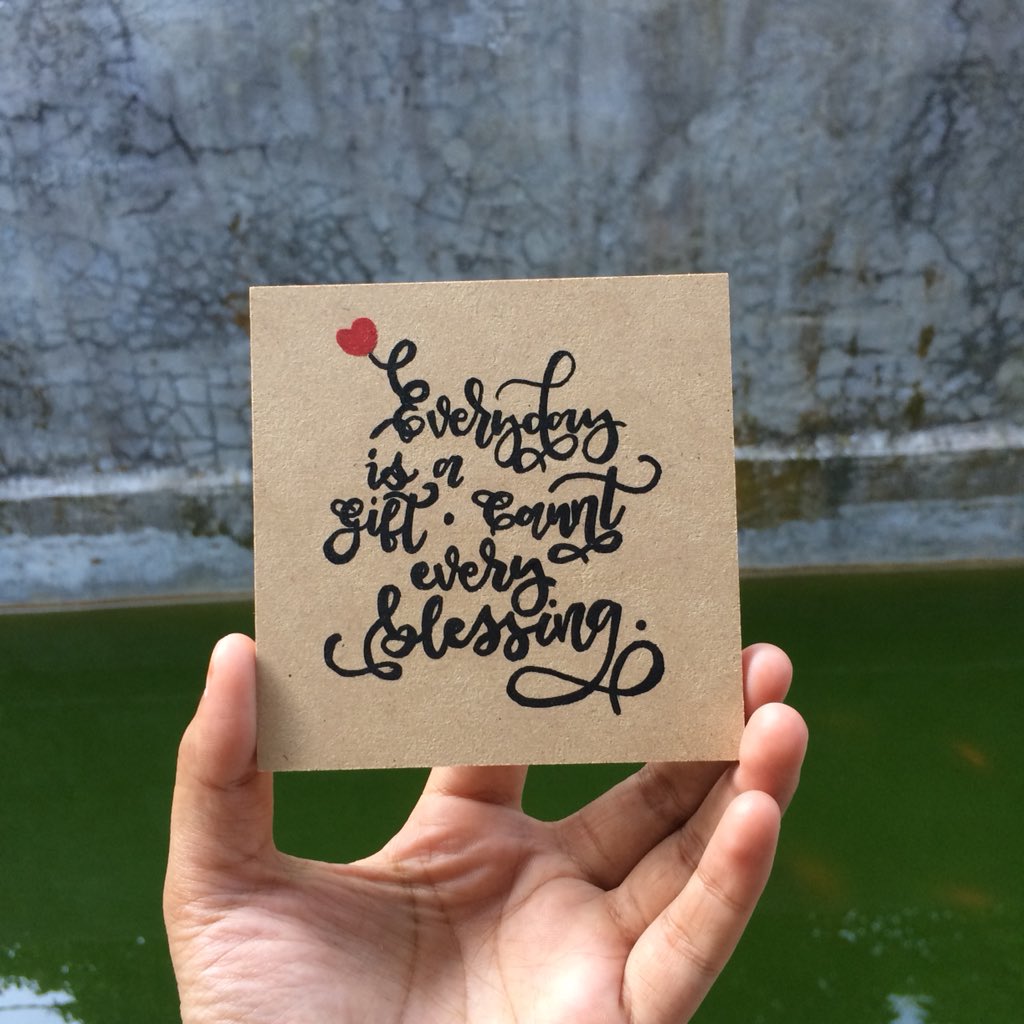 Everyday
is a
Gift. Count
every
blessing.